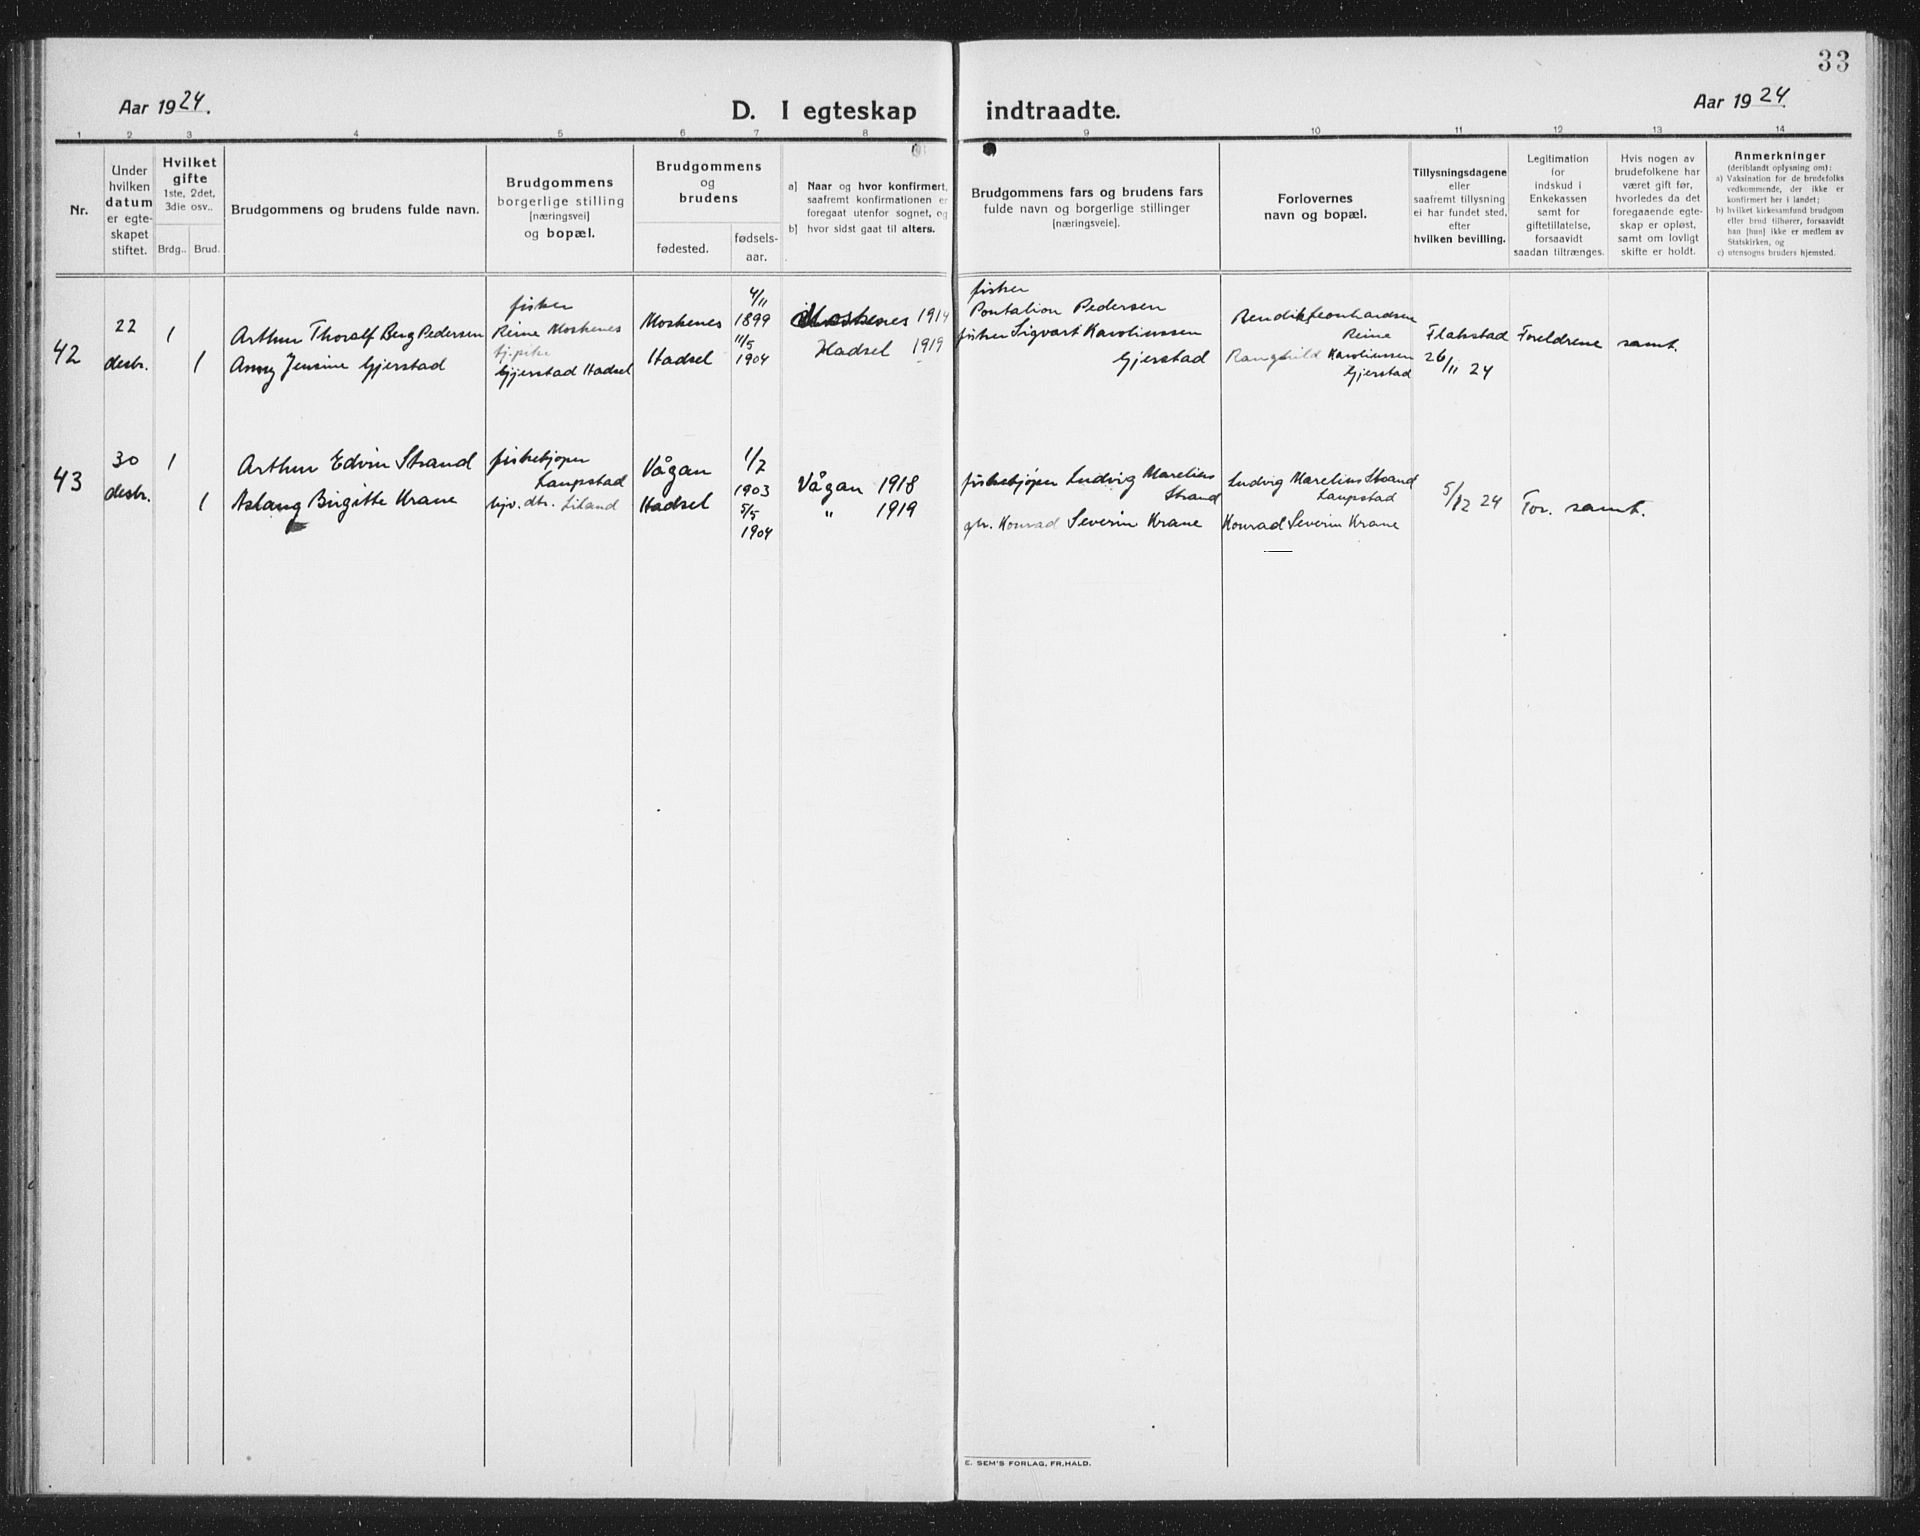 33
Aar 1924.
D. I egteskap indtraadte.
Aar 1924.
1 2 3 4 5 6 7 8 9 10 11 12 13 14
Nr.
Under
hvilken
datum
er egte-
skapet
stiftet.
Hvilket
gifte
1ste, 2det,
3die osv..
Brdg.. Brud.
Brudgommens og brudens fulde navn.
Brudgommens
borgerlige stilling
[næringsvei]
og bopæl.
Brudgommens
og
brudens
fødested.
fødsels-
aar.
a] Naar og hvor konfirmert,
saafremt konfirmationen er
foregaat utenfor sognet, og
b] hvor sidst gaat til alters.
Brudgommens fars og brudens fars
fulde navn og borgerlige stillinger
[næringsveie].
Forlovernes
navn og bopæl.
Tillysningsdagene
eller
saafremt tillysning
ei har fundet sted,
efter
hvilken bevilling.
Legitimation
for
indskud i
Enkekassen
samt for
giftetillatelse,
forsaavidt
saadan tiltrænges.
Hvis nogen av
brudefolkene har
været gift før,
hvorledes da det
foregaaende egte-
skap er opløst,
samt om lovligt
skifte er holdt.
Anmerkninger
(deriblandt oplysning om):
a) Vaksination for de brudefolks
vedkommende, der ikke er
konfirmert her i landet;
b) hvilket kirkesamfund brudgom
eller brud tilhører, forsaavidt
han [hun] ikke er medlem av
Statskirken, og
c) utensogns bruders hjemsted.
42
22
desbr.
1
1
Arthur Thoralf Berg Pedersen
Anny Jensine Gjerstad
fisker
Reine Moskenes
Gjerstad Hadsel
Moskenes
Hadsel
4/11
1899
11/5
1904
Moskenes 1914
Hadsel 1919
fisker
Pontalion Pedersen
fisker Sigvart Karoliussen
Gjerstad
Bendik Leonhardsen
Reine
Ranghild Karoliussen
Gjerstad
Flakstad
26/11 24
Foreldrene samt.
43
30
desbr.
1
1
Arthur Edvin Strand
Aslaug Birgitte Krane
fiskekjøper
Laupstad
gjv. dtr. Liland
Vågan
Hadsel
1/7
1903
5/5
1904
Vågan 1918
" 1919
fiskekjøper Ludvig Marelius
Strand
gbr. Konrad Severin Krane
Ludvig Marelius Strand
Laupstad
Konrad Severin Krane
5/12 24
For. samt.
E. SEM'S FORLAG, FR.HALD.